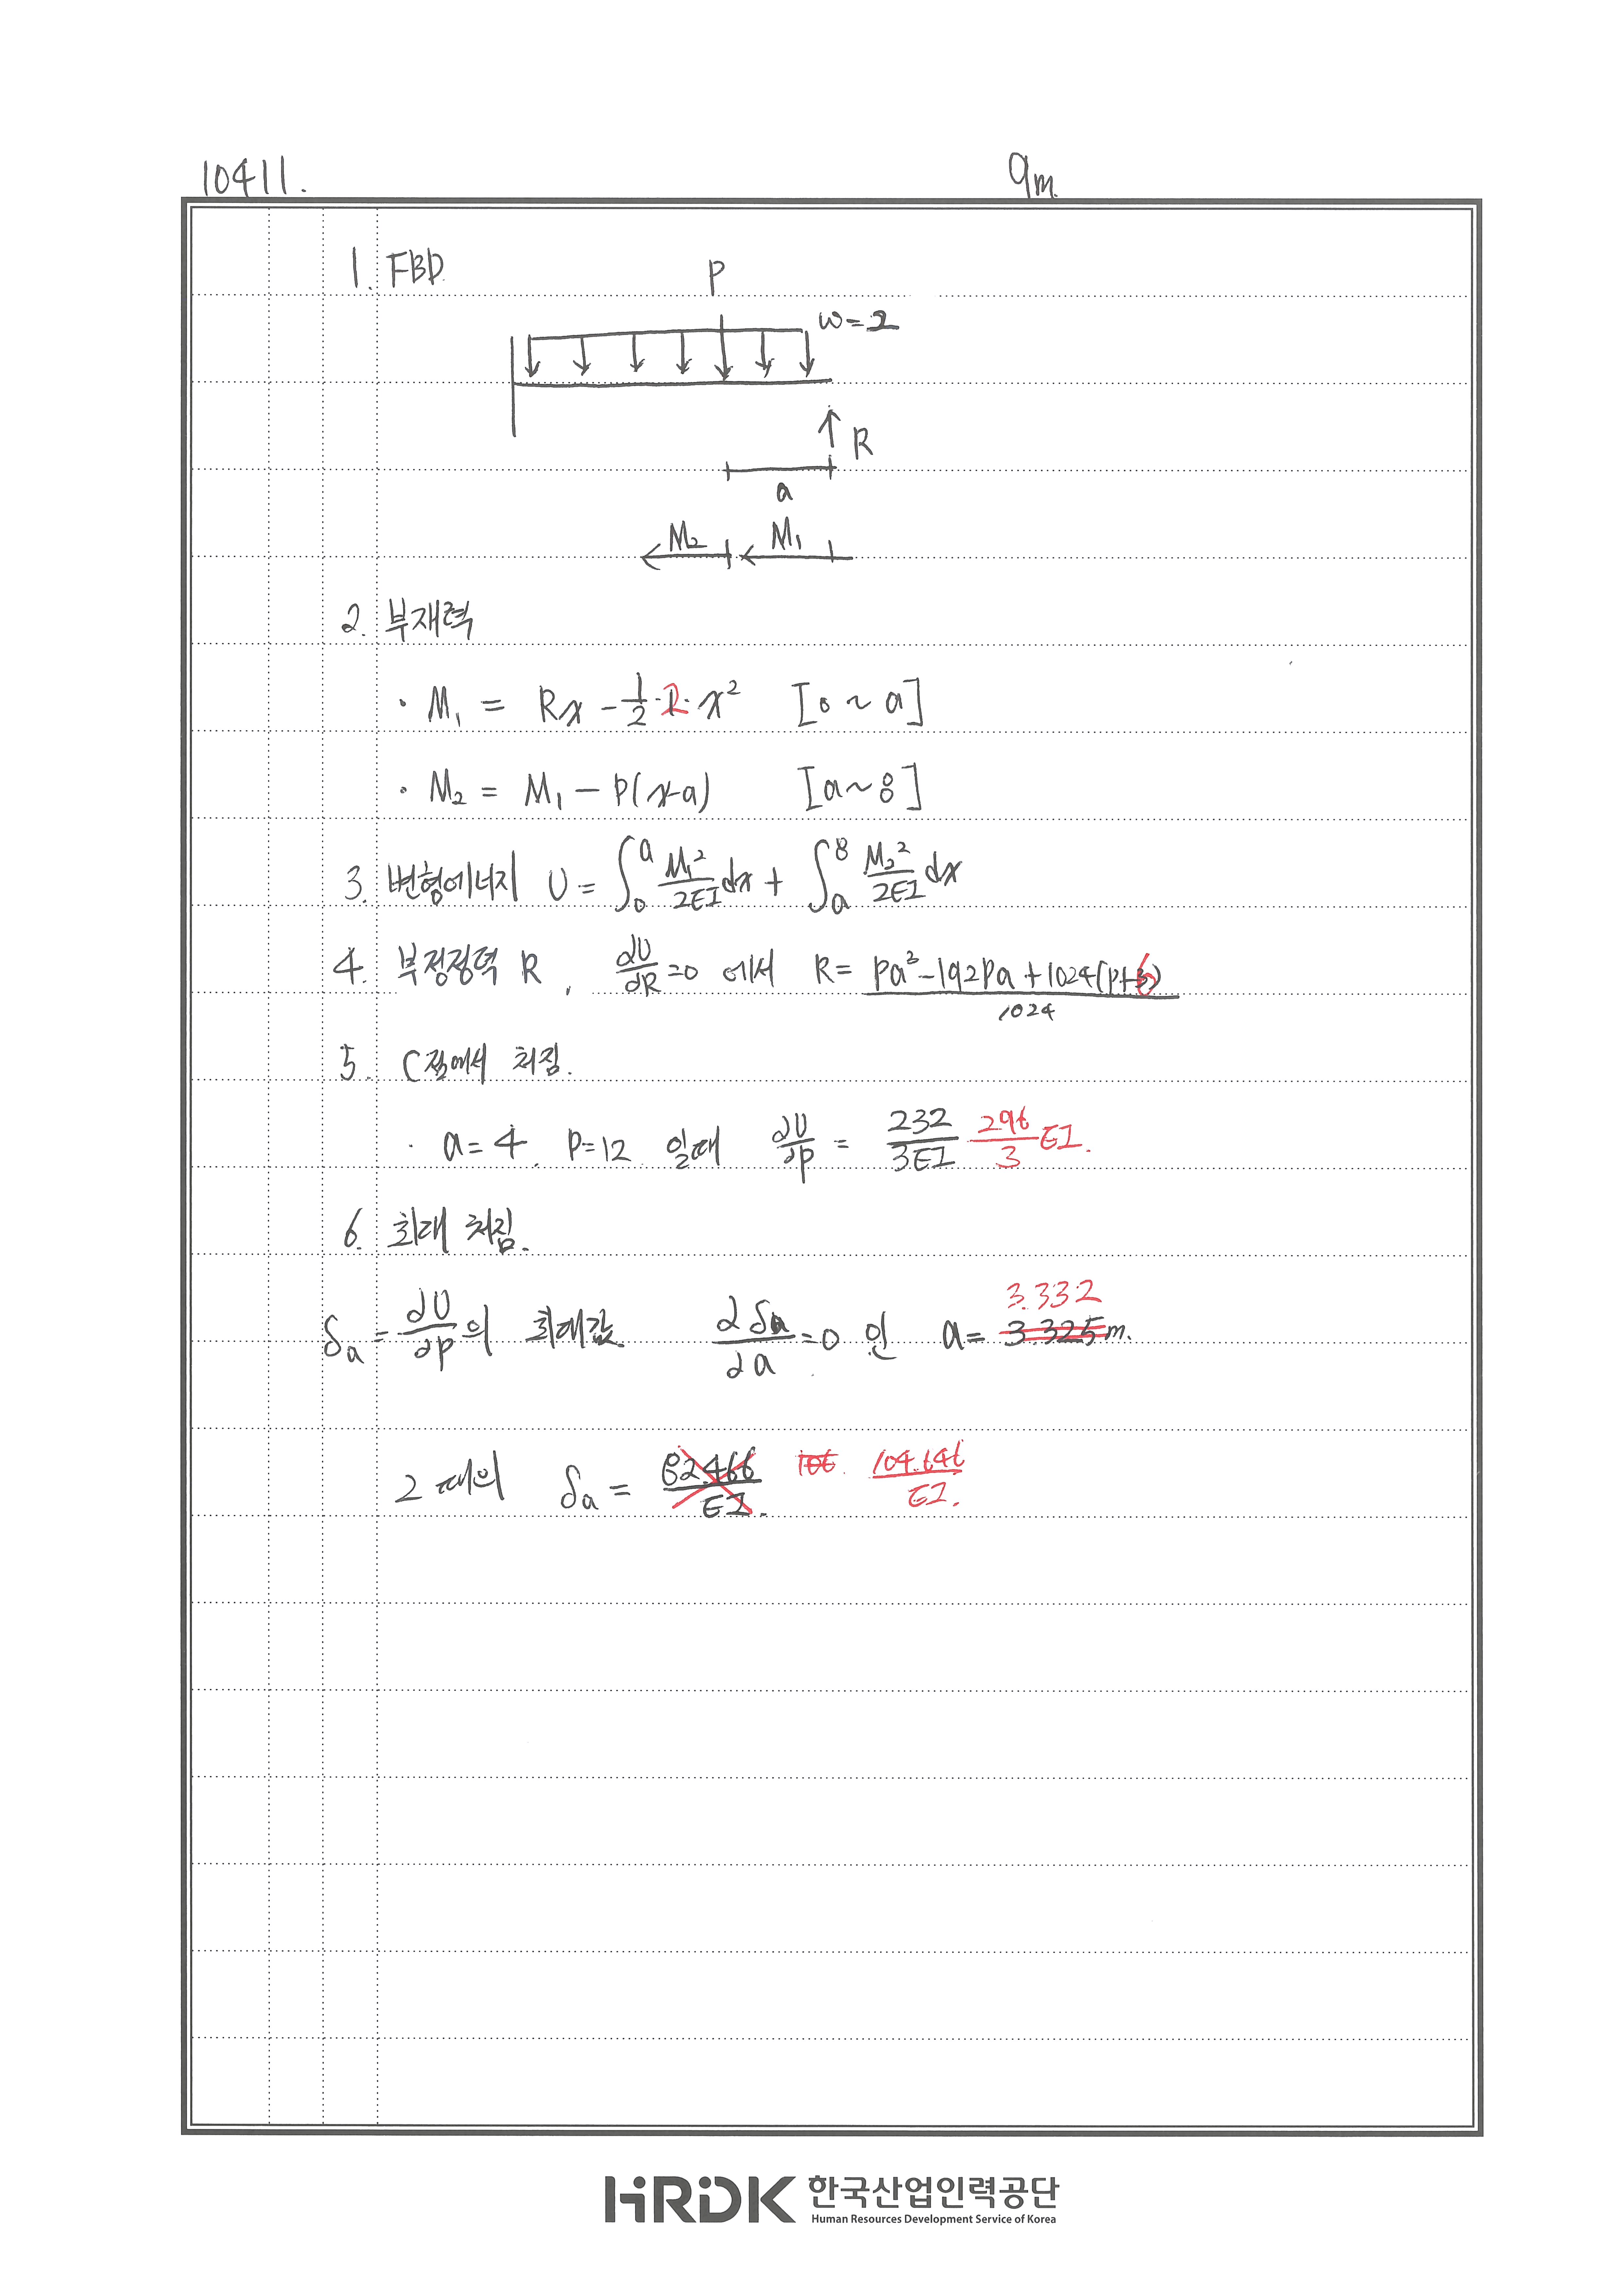 10411.
9m.
1. FBD
P
w=2
R
a
M₂ M₁
2. 부재력
· M₁ = Rx - 1/2 · 2 · x² [0 ~ a]
· M₂ = M₁ - P(x-a) [a ~ 8]
3. 변형에너지 U = ∫₀ᵃ M₁²/2EI dx + ∫ₐ⁸ M₂²/2EI dx
4. 부정정력 R, ∂U/∂R = 0 에서 R = Pa³ - 192Pa + 1024(P+6) / 1024
5. C점에서 처짐.
· a=4. P=12 일때 ∂U/∂P = 232/3EI 296/3 EI.
6. 최대 처짐.
δa = ∂U/∂P 의 최대값 ∂δa/∂a = 0 인 a = 3.325 m. 3.332
2 때의 δa = 82.466/EI. 106. 104.646/EI.
HRDK 한국산업인력공단
Human Resources Development Service of Korea